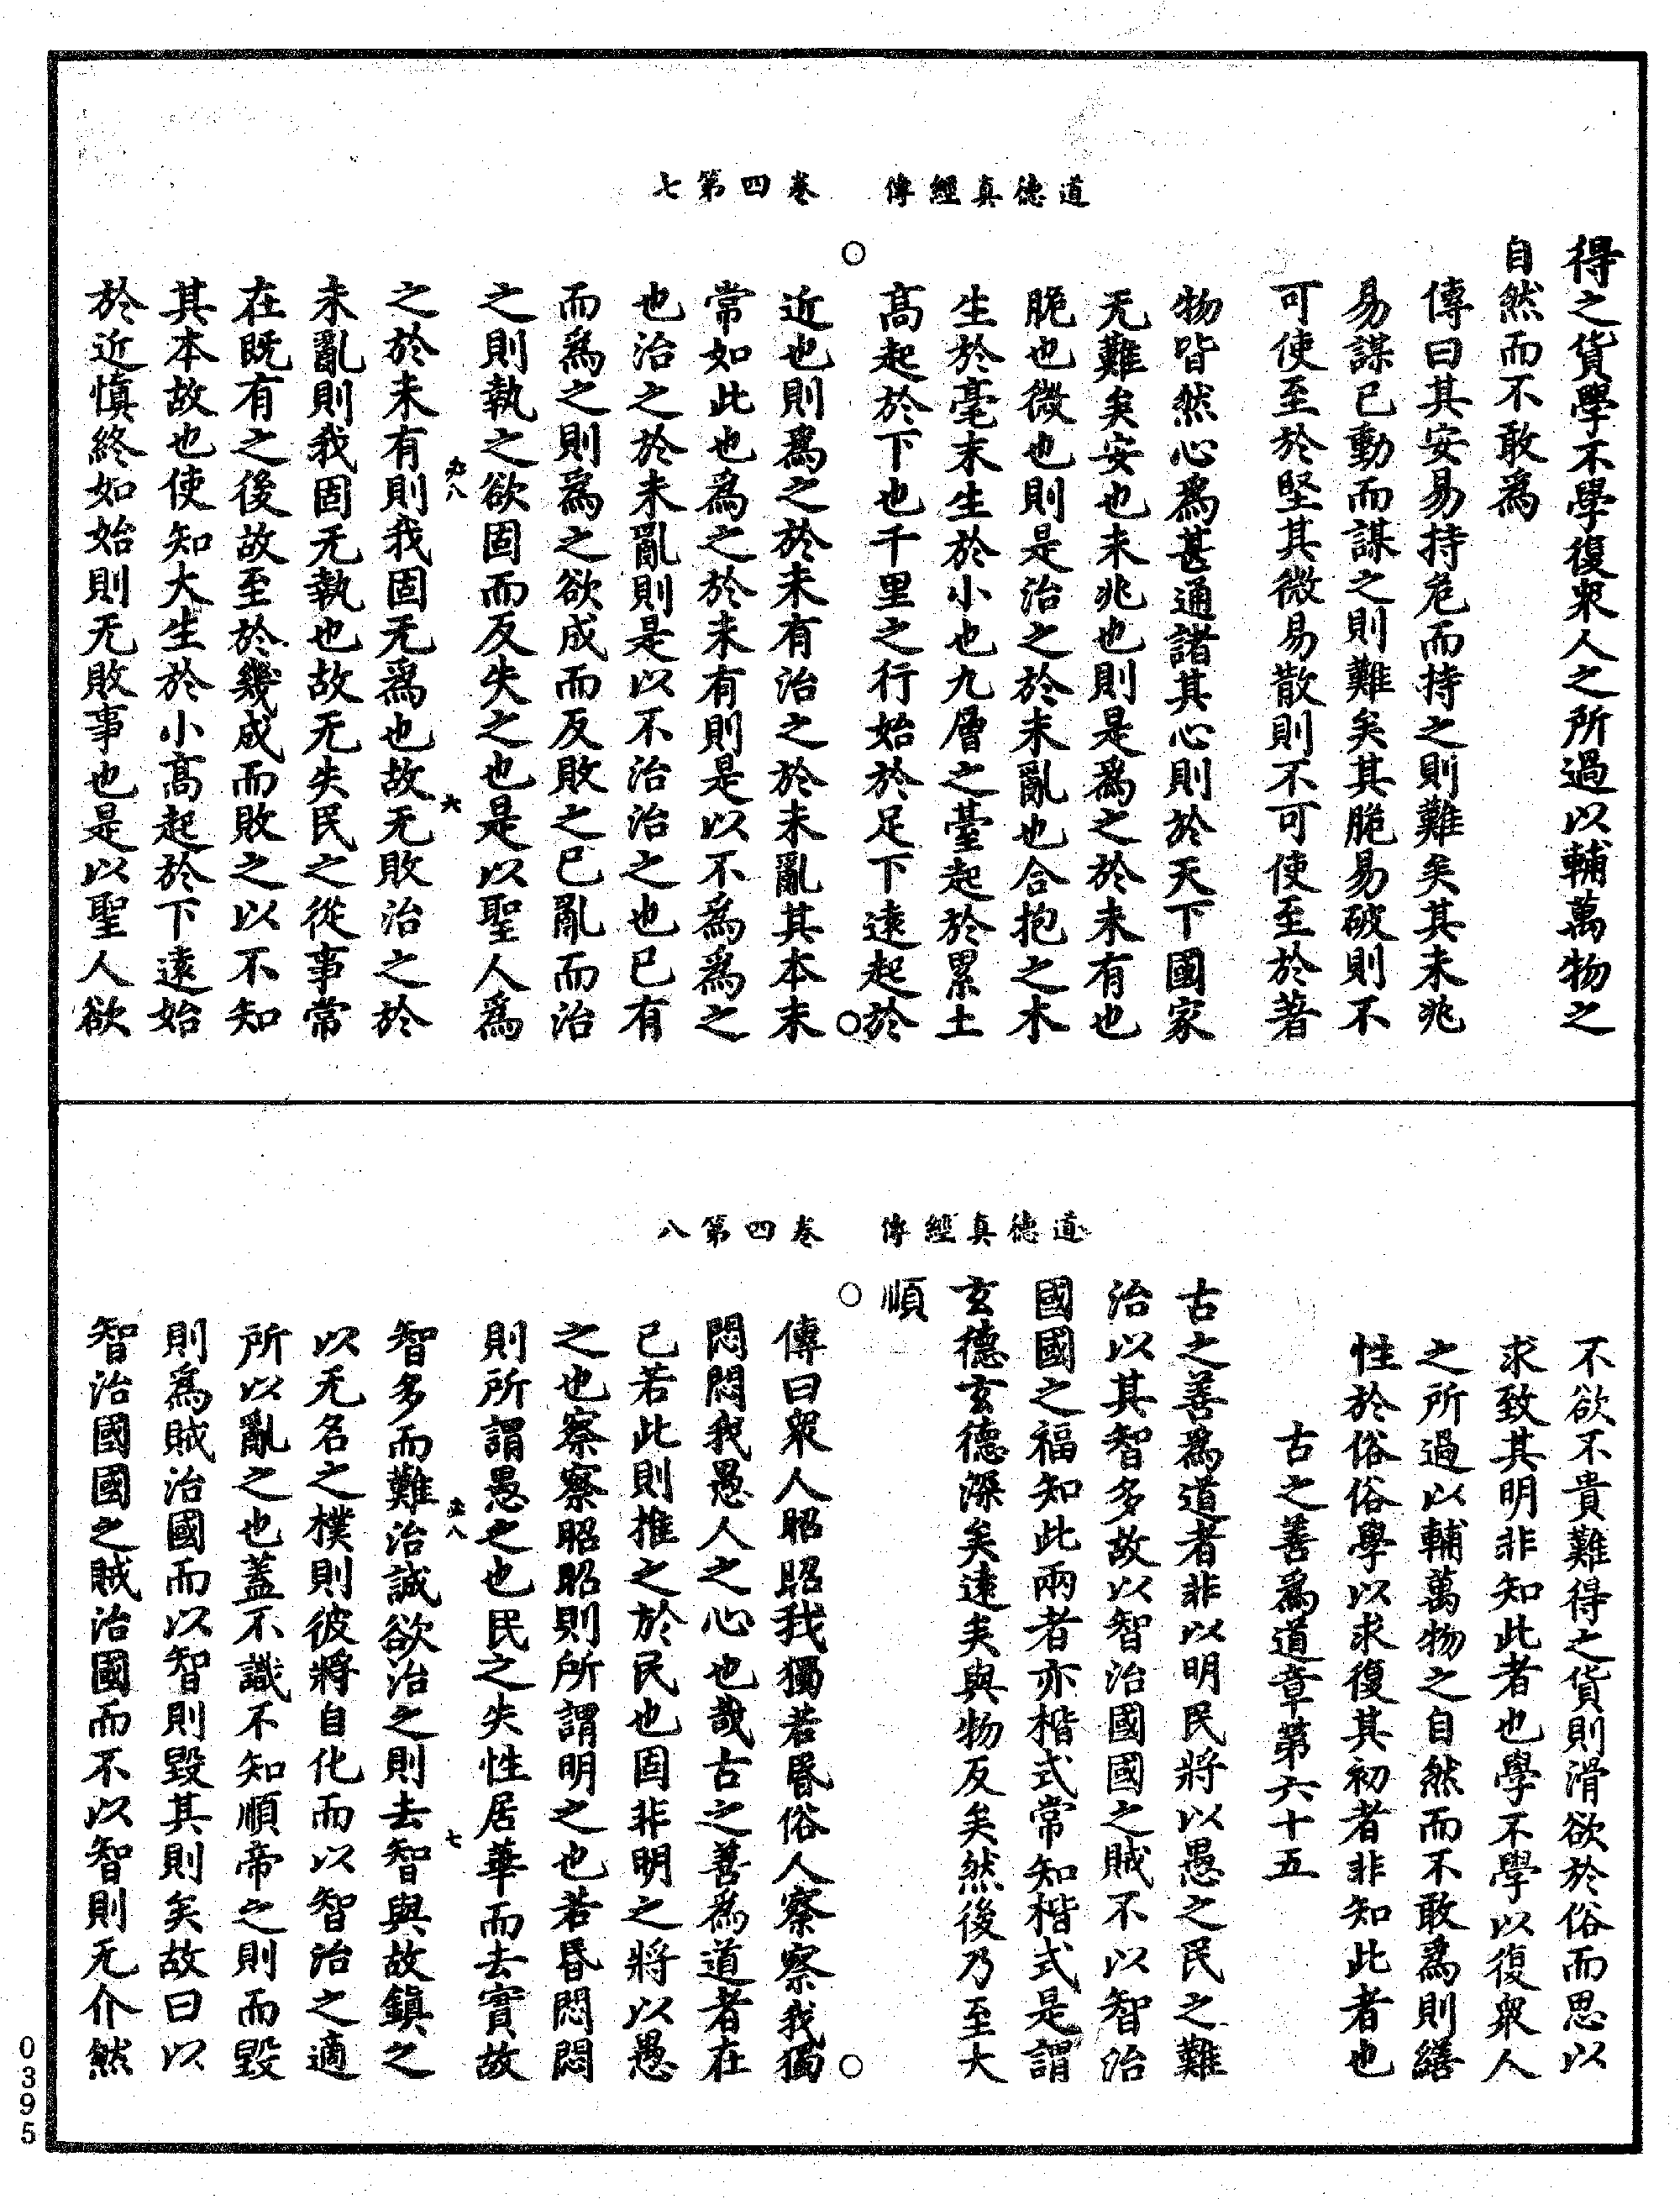 道德真經傳　卷四第七
得之貨學不學復衆人之所過以輔萬物之
自然而不敢爲
傳曰其安易持危而持之則難矣其未兆
易謀已動而謀之則難矣其脆易破則不
可使至於堅其微易散則不可使至於著
物皆然心爲甚通諸其心則於天下國家
无難矣安也未兆也則是爲之於未有也
脆也微也則是治之於未亂也合抱之木
生於毫末生於小也九層之臺起於累土
高起於下也千里之行始於足下遠起於
近也則爲之於未有治之於未亂其本末
常如此也爲之於未有則是以不爲爲之
也治之於未亂則是以不治治之也已有
而爲之則爲之欲成而反敗之已亂而治
之則執之欲固而反失之也是以聖人爲
之於未有則我固无爲也故无敗治之於
未亂則我固无執也故无失民之從事常
在既有之後故至於幾成而敗之以不知
其本故也使知大生於小高起於下遠始
於近慎終如始則无敗事也是以聖人欲
道德真經傳　卷四第八
不欲不貴難得之貨則滑欲於俗而思以
求致其明非知此者也學不學以復衆人
之所過以輔萬物之自然而不敢爲則繕
性於俗俗學以求復其初者非知此者也
古之善爲道章第六十五
古之善爲道者非以明民將以愚之民之難
治以其智多故以智治國國之賊不以智治
國國之福知此兩者亦楷式常知楷式是謂
玄德玄德深矣遠矣與物反矣然後乃至大
順
傳曰衆人昭昭我獨若昏俗人察察我獨
悶悶我愚人之心也哉古之善爲道者在
己若此則推之於民也固非明之將以愚
之也察察昭昭則所謂明之也若昏悶悶
則所謂愚之也民之失性居華而去實故
智多而難治誠欲治之則去智與故鎮之
以无名之樸則彼將自化而以智治之適
所以亂之也蓋不識不知順帝之則而毀
則爲賊治國而以智則毀其則矣故曰以
智治國國之賊治國而不以智則无介然
0395